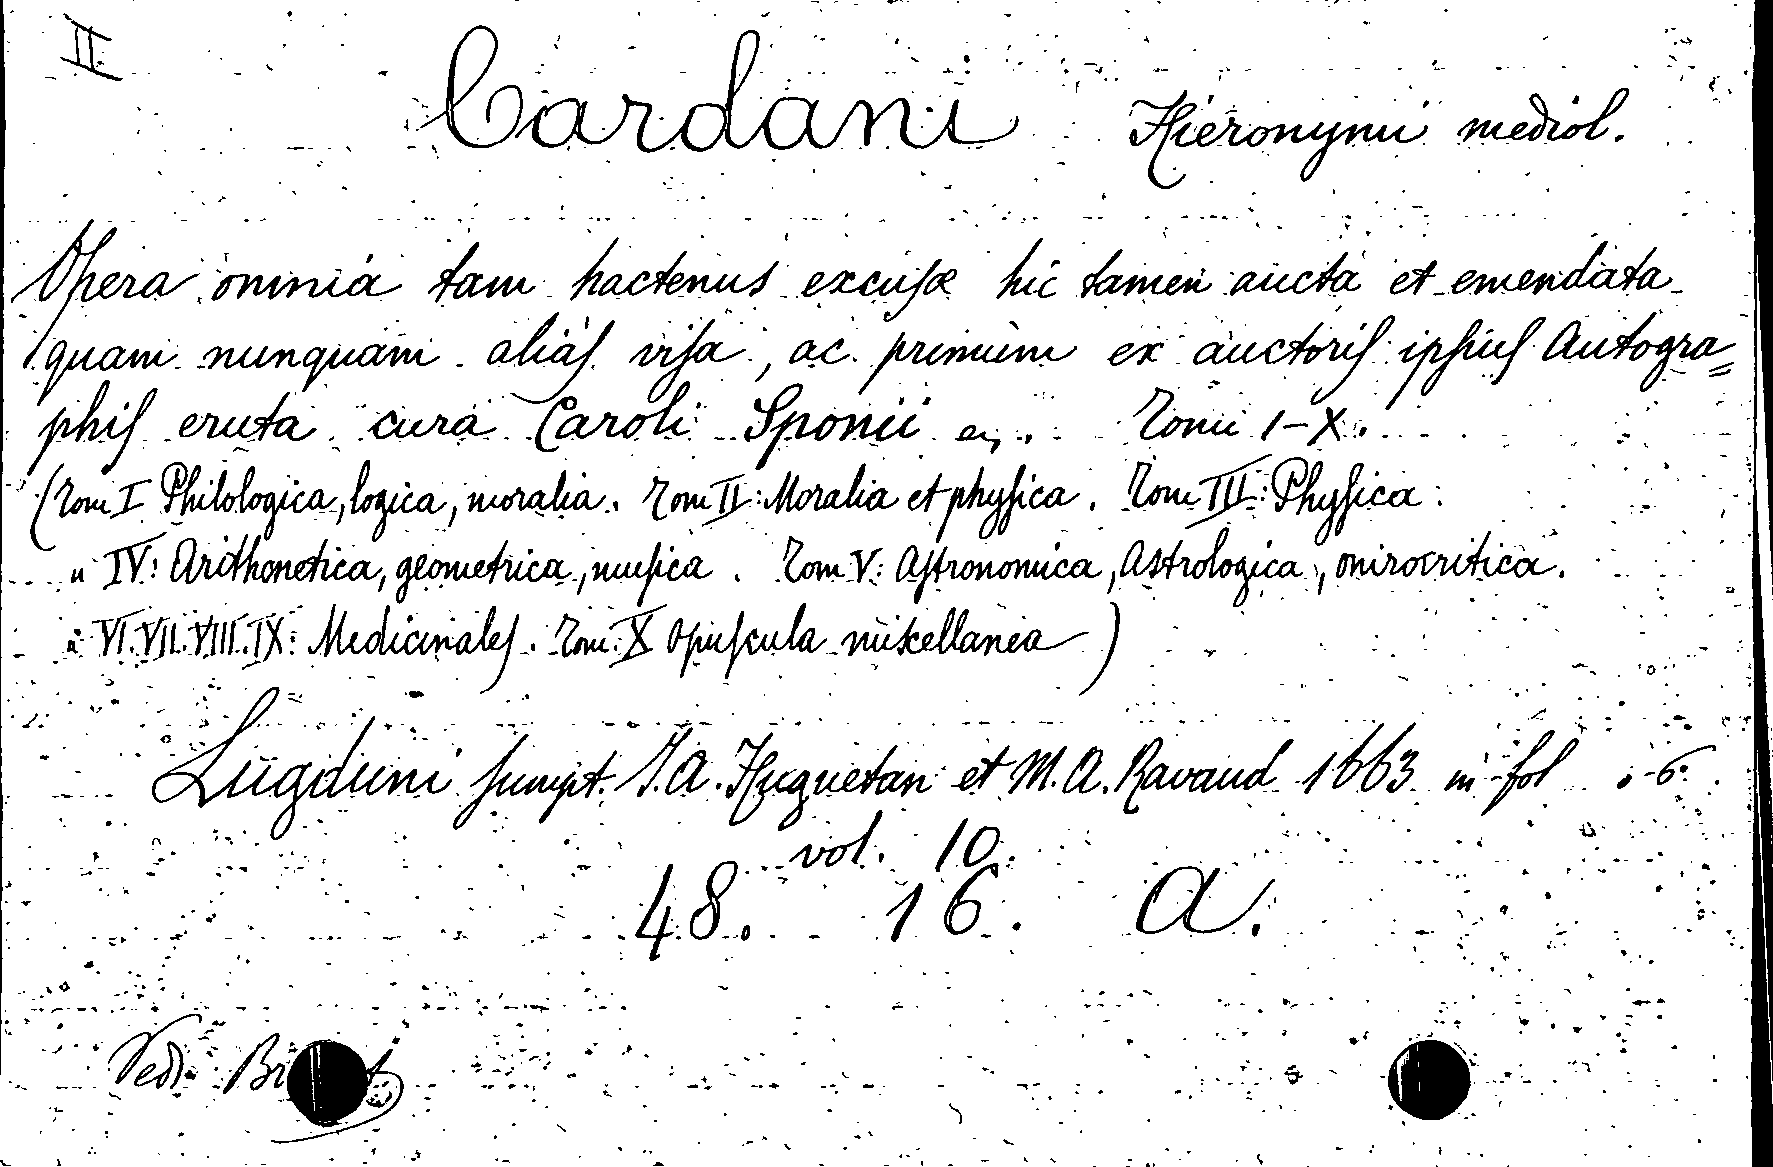 II
Cardani Hieronymi mediol.
Opera omnia tam hactenus excusa hic tamen aucta et emendata
quam nunquam alias visa, ac primum ex auctoris ipsius Autogra=
phis eruta cura Caroli Sponii Tomi I-X.
(Tom I Philologica, logica, moralia. Tom II: Moralia et physica. Tom III: Physica.
" IV: Arithmetica, geometrica, musica. Tom V: Astronomica, Astrologica, onirocritica.
" VI. VII. VIII. IX: Medicinales. Tom. X Opuscula miscellanea)
Lugduni sumpt. I. A. Huguetan et M. A. Ravaud 1663 in fol
vol. 10.
48. 16. A.
Vedi